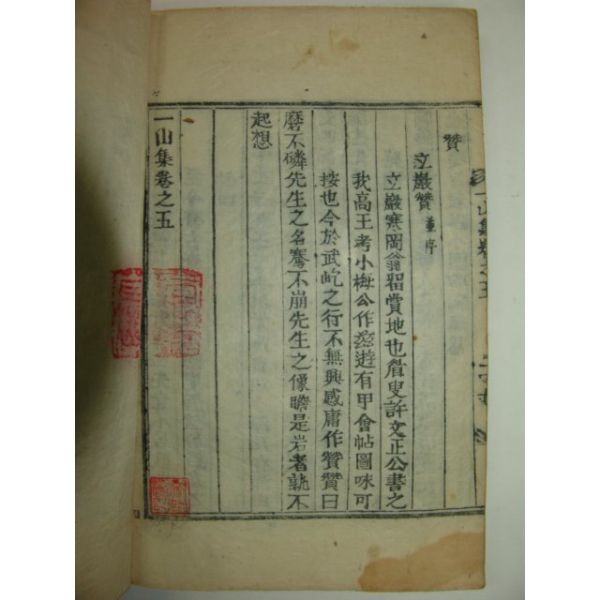 贊
立巖贊 並序
立巖寒岡翁留賞地也眉叟許文正公書之
我高王考小梅公作遊有甲會帖圖咏可
按也今於武屹之行不無興感庸作贊贊曰
磨不磷先生之名騫不崩先生之像瞻是岩者孰不
起想
一山集卷之五
一山集卷之五